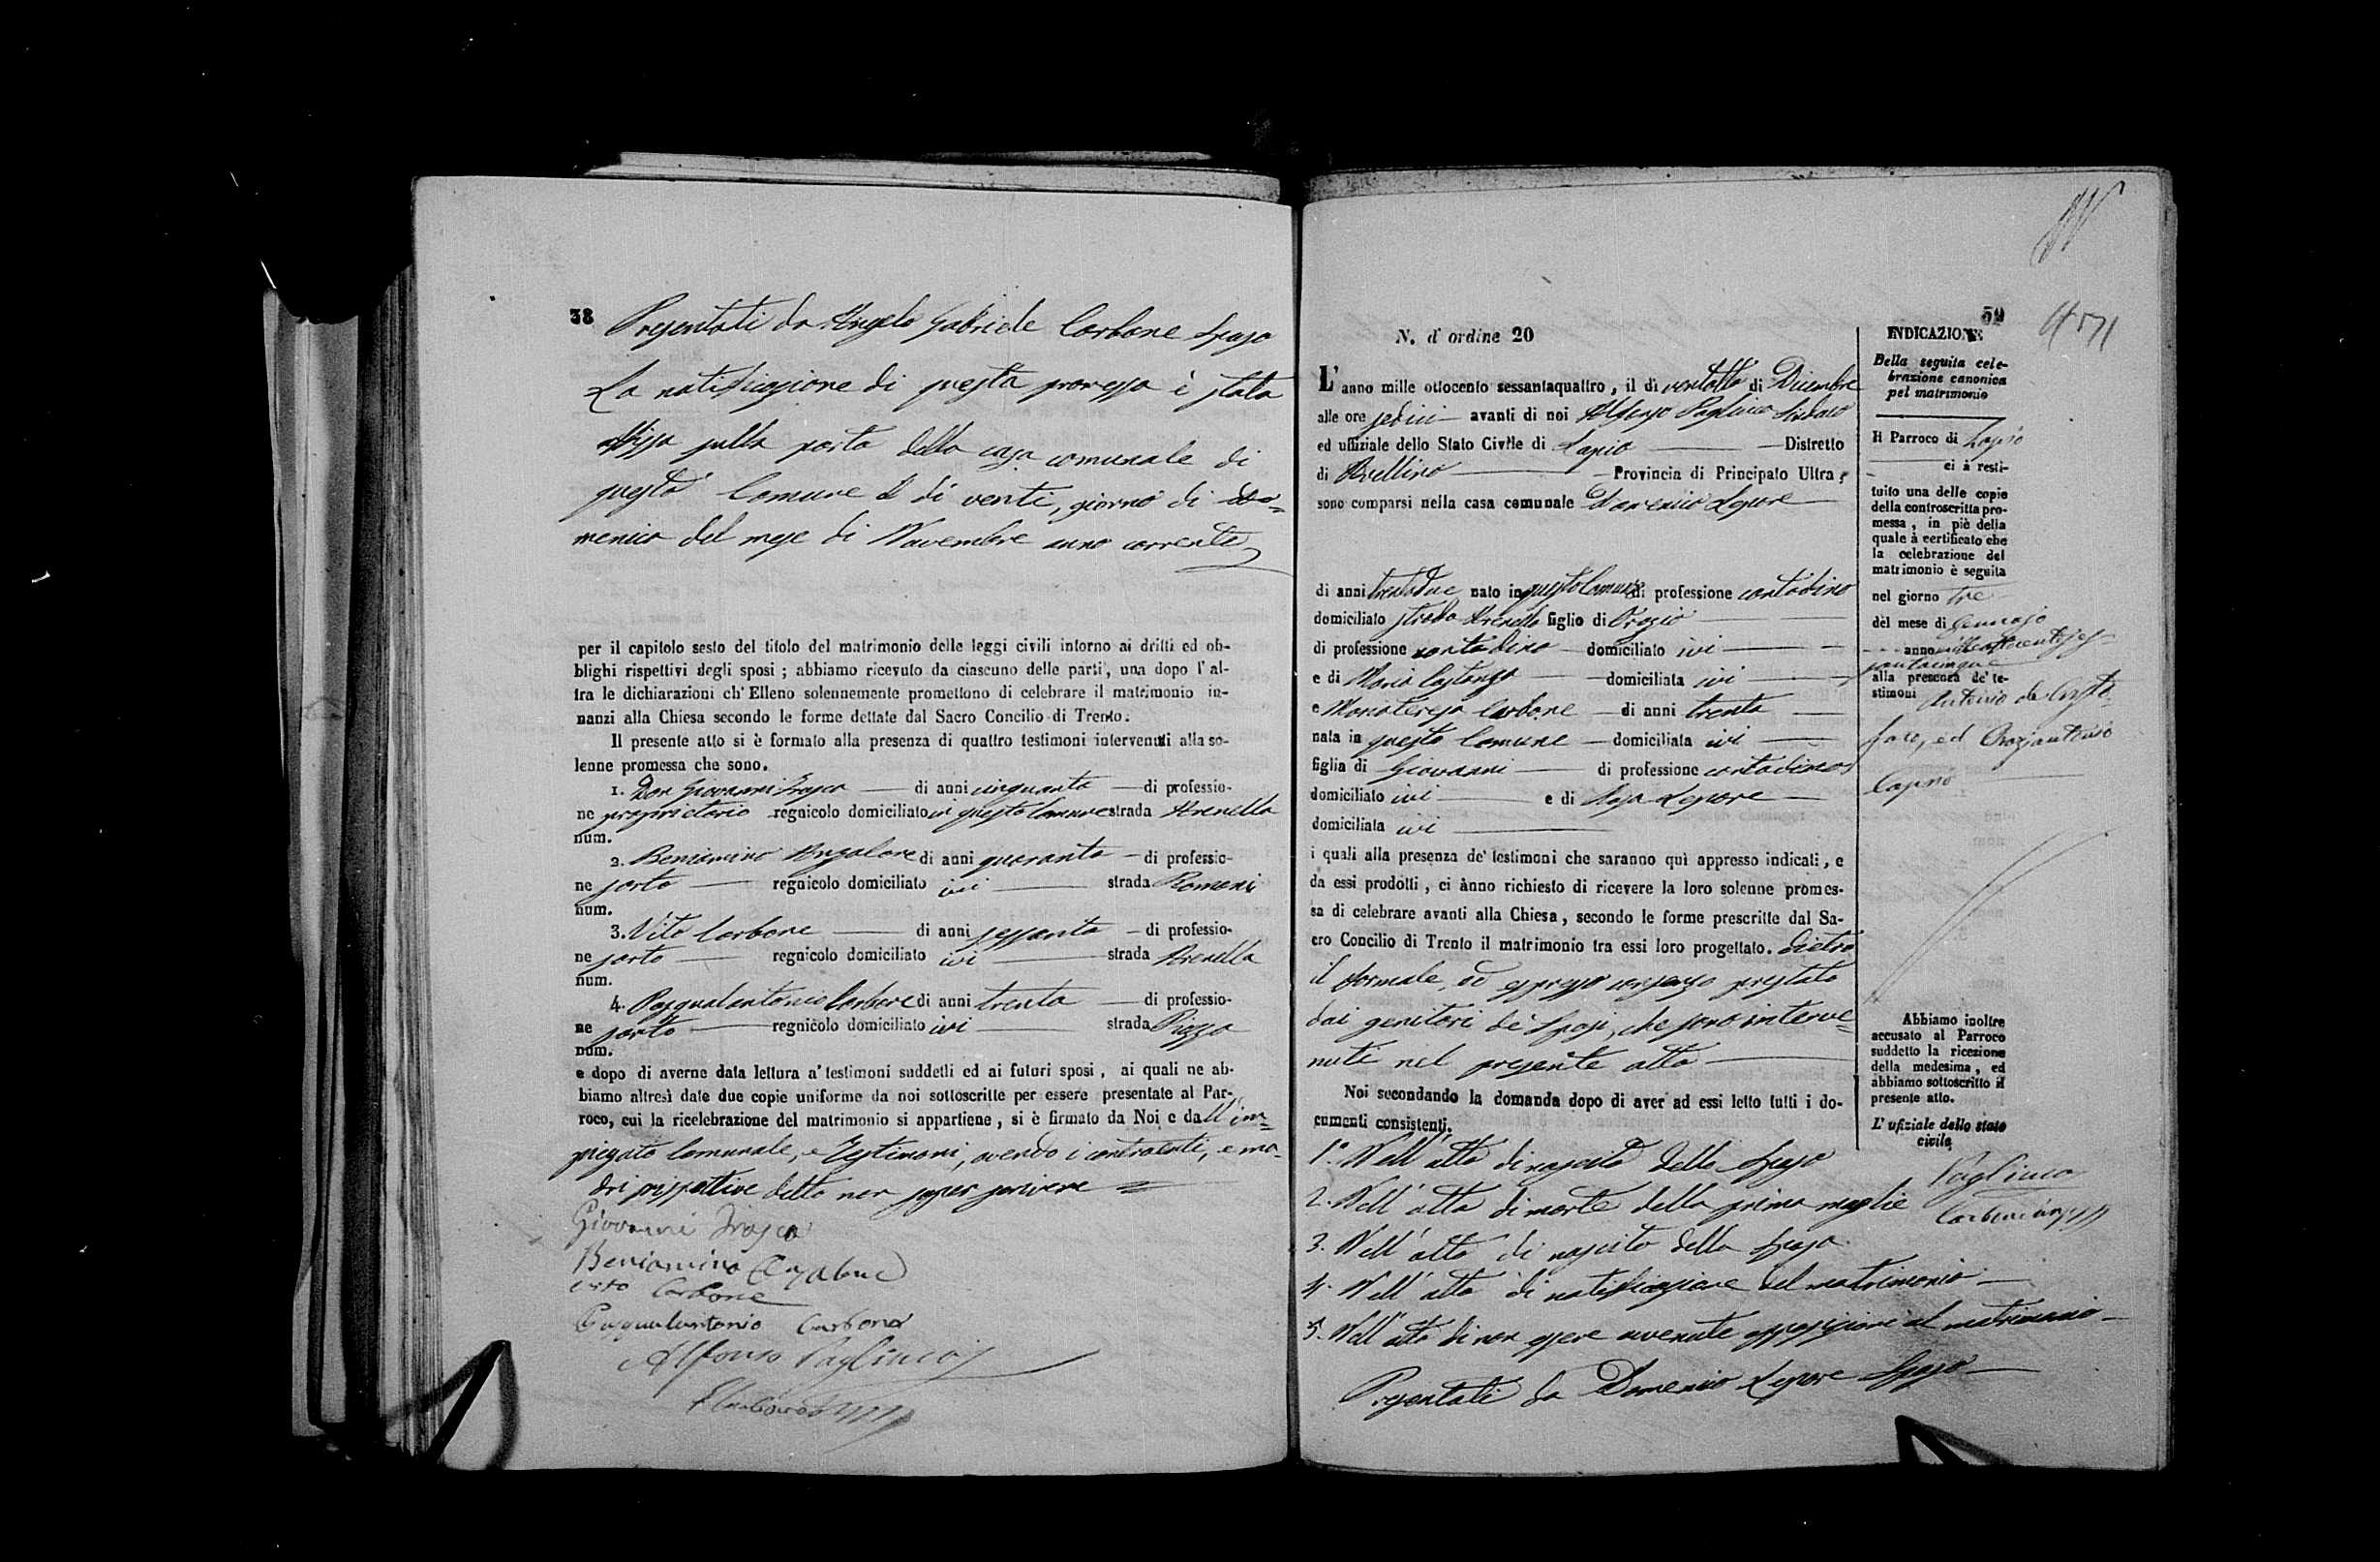 38
Presentati da Angelo Gabriele Carbone sposo
La notificazione di questa promessa è stata
affissa sulla porta della casa comunale di
questo Comune il dì venti, giorno di do=
menica del mese di Novembre anno corrente
per il capitolo sesto del titolo del matrimonio delle leggi civili intorno ai dritti ed ob-
blighi rispettivi degli sposi ; abbiamo ricevuto da ciascuno delle parti, una dopo l'al-
tra le dichiarazioni ch'Elleno solennemente promettono di celebrare il matrimonio in-
nanzi alla Chiesa secondo le forme dettate dal Sacro Concilio di Trento.
Il presente atto si è formato alla presenza di quattro testimoni intervenuti alla so-
lenne promessa che sono.
1. Don Giovanni di anni cinquanta di professio-
ne proprietario regnicolo domiciliato in questo Comune strada Arenella
num.
2. Beniamino di anni quaranta di professio-
ne sarto regnicolo domiciliato ivi strada Romani
num.
3. Vito Carbone di anni sessanta di professio-
ne sarto regnicolo domiciliato ivi strada Arenella
num.
4. Pasqualantonio Carbone di anni trenta di professio-
ne sarto regnicolo domiciliato ivi strada Piazza
num.
e dopo di averne data lettura a' testimoni suddetti ed ai futuri sposi, ai quali ne ab-
biamo altresì date due copie uniforme da noi sottoscritte per essere presentate al Par-
roco, cui la ricelebrazione del matrimonio si appartiene, si è firmato da Noi e dall'im=
piegato Comunale, e Testimoni, avendo i contraenti, e ma-
dri rispettive detto non saper scrivere
Giovanni
Beniamino
Vito Carbone
Pasqualantonio Carbone
Alfonso Pagliuca
39
N. d'ordine 20
L'anno mille ottocento sessantaquattro, il dì ventotto di Dicembre
alle ore sedici avanti di noi Alfonso Pagliuca Sindaco
ed uffiziale dello Stato Civile di Lapio Distretto
di Avellino Provincia di Principato Ultra,
sono comparsi nella casa comunale Domenico Lepore
di anni trentadue nato in questo Comune di professione contadino
domiciliato strada Arenella figlio di Orazio
di professione contadino domiciliato ivi
e di Maria Costanza domiciliata ivi
e Mariateresa Carbone di anni trenta
nata in questo Comune domiciliata ivi
figlia di Giovanni di professione contadino
domiciliato ivi e di Rosa Lepore
domiciliata ivi
i quali alla presenza de' testimoni che saranno quì appresso indicati, e
da essi prodotti, ci ànno richiesto di ricevere la loro solenne promes-
sa di celebrare avanti alla Chiesa, secondo le forme prescritte dal Sa-
cro Concilio di Trento il matrimonio tra essi loro progettato. dietro
il formale, ed espresso consenso prestato
dai genitori de' Sposi, che sono interve=
nuti nel presente atto
Noi secondando la domanda dopo di aver ad essi letto tutti i do-
cumenti consistenti.
1° Nell'atto di nascita dello Sposo
2. Nell'atto di morte della prima moglie
3. Nell'atto di nascita della Sposa
4. Nell'atto di notificazione del matrimonio
5. Nell'atto di non essere avvenute opposizioni al matrimonio
Presentati da Domenico Lepore Sposo
INDICAZIONE
Della seguita cele-
brazione canonica
pel matrimonio
Il Parroco di Lapio
ci à resti-
tuito una delle copie
della controscritta pro-
messa, in piè della
quale à certificato che
la celebrazione del
matrimonio è seguita
nel giorno tre
del mese di Gennajo
anno milleottocentoses
santacinque
alla presenza de' te-
stimoni Antonio de Cristo
faro, ed Oraziantonio
Abbiamo inoltre
accusato al Parroco
suddetto la ricezione
della medesima, ed
abbiamo sottoscritto il
presente atto.
L'ufiziale dello stato
civile
Pagliuca